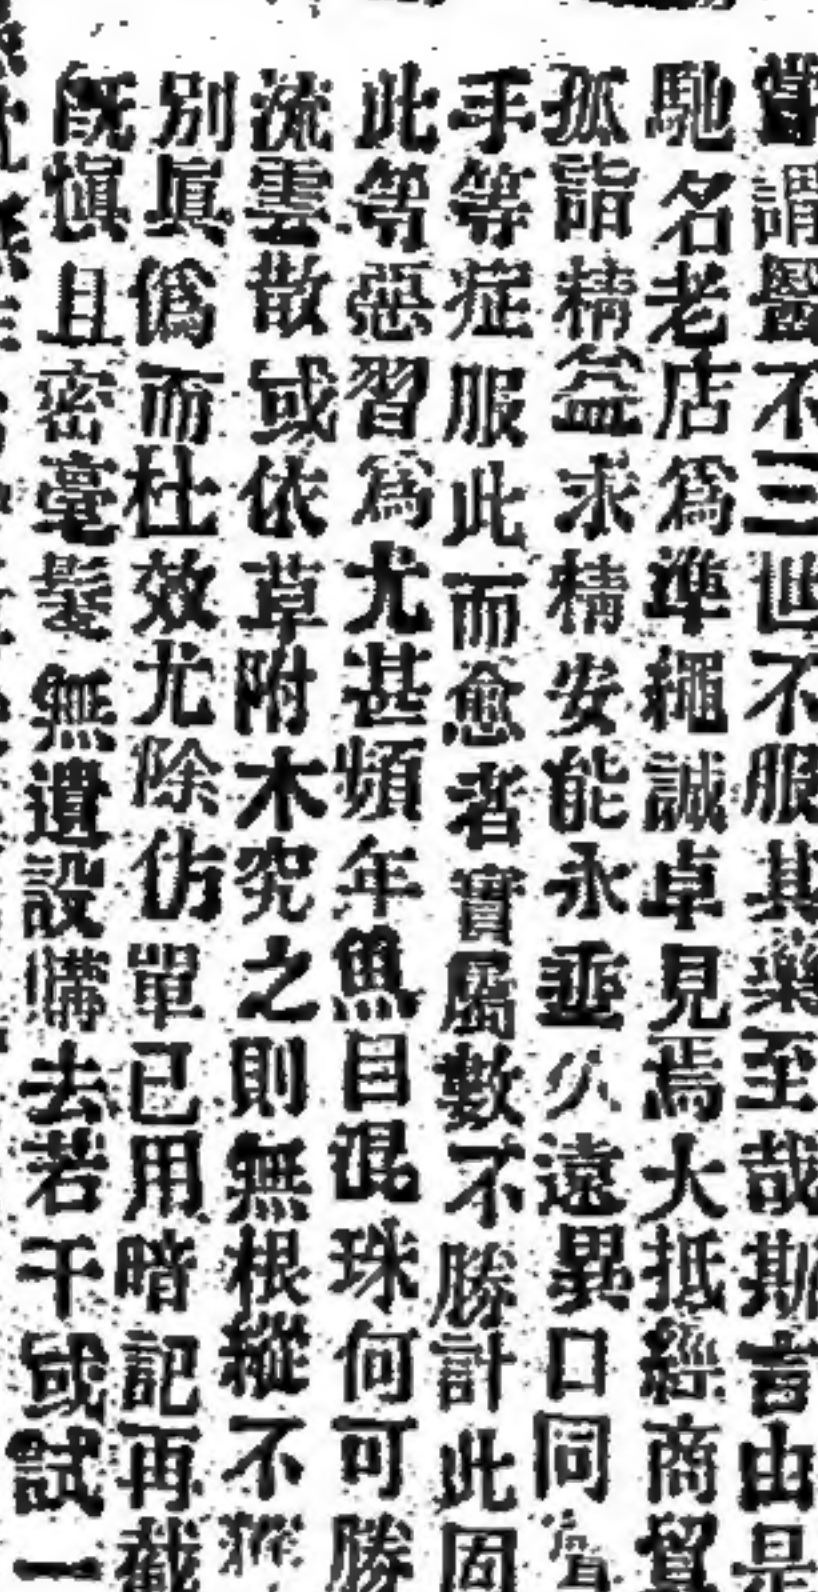 嘗謂醫不三世不服其藥至哉斯言由是
馳名老店爲準繩誠卓見焉大抵經商貿
孤詣精益求精安能永垂久遠異口同
手等症服此而愈者實屬數不勝計此固
此等惡習爲尤甚頻年魚目混珠何可勝
流雲散或依草附木究之則無根縱不
別眞僞而杜效尤除仿單已用暗記再截
旣愼且密毫髮無遺設購去若干或試一